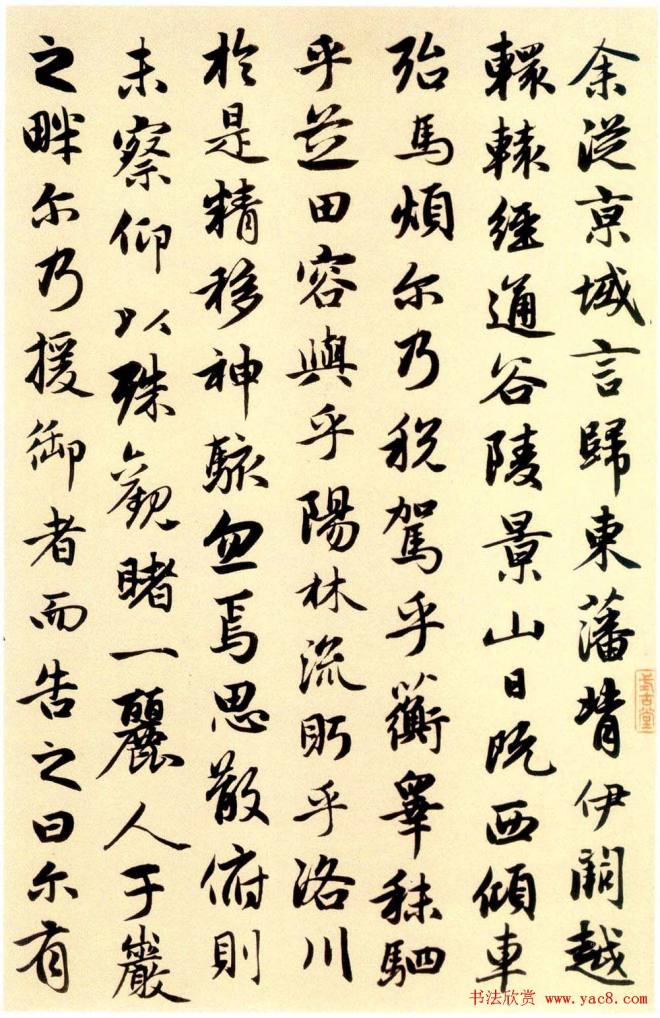 余從京域言歸東藩背伊闕越
轘轅經通谷陵景山日既西傾車
殆馬煩尔乃税駕乎蘅皋秣駟
乎芝田容與乎陽林流眄乎洛川
於是精移神駭忽焉思散俯則
未察仰以殊觀睹一麗人于巖
之畔尔乃援御者而告之曰尔有
书法欣赏 www.yac8.com